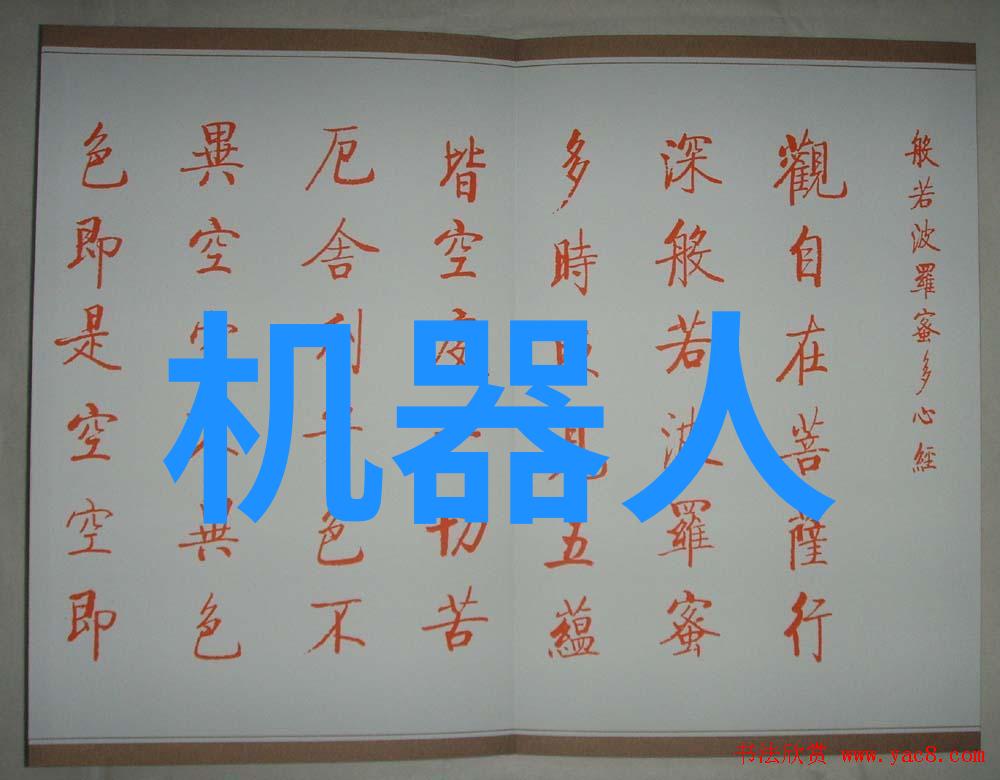 般若波羅蜜多心經
觀自在菩薩行
深般若波羅蜜
多時見五蘊
皆空度切苦
厄舍利子色不
異空空不異色
色即是空空即
机器人
书法欣赏 www.yac8.com